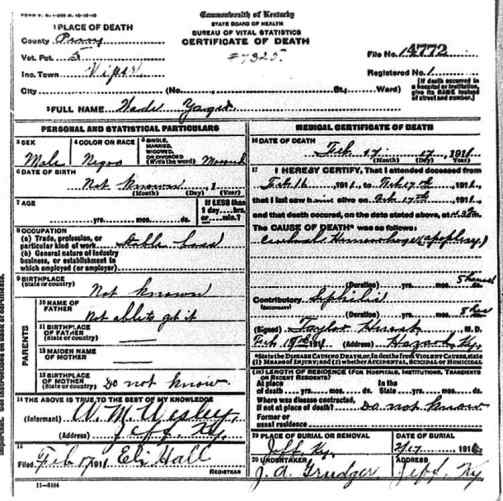 Commonwealth of Kentucky
STATE BOARD OF HEALTH
BUREAU OF VITAL STATISTICS
CERTIFICATE OF DEATH
1 PLACE OF DEATH
County Perry
Vot. Pct. 5
Inc. Town Viper
City (No. St., Ward)
File No. 14772
Registered No. 1
(If death occurred in a hospital or institution, give its NAME instead of street and number.)
#7325
2 FULL NAME Wade
PERSONAL AND STATISTICAL PARTICULARS
3 SEX
Male
4 COLOR OR RACE
Negro
5 SINGLE, MARRIED, WIDOWED, OR DIVORCED (Write the word)
6 DATE OF BIRTH
Not Known, 1
(Month) (Day) (Year)
7 AGE
yrs. mos. ds.
If LESS than 1 day, hrs. or min.?
8 OCCUPATION
(a) Trade, profession, or particular kind of work Stable
(b) General nature of industry business, or establishment in which employed (or employer)
9 BIRTHPLACE
(State or country)
Not Known
PARENTS
10 NAME OF FATHER
Not able to get it
11 BIRTHPLACE OF FATHER
(State or country)
12 MAIDEN NAME OF MOTHER
13 BIRTHPLACE OF MOTHER
(State or country)
Do not know
14 THE ABOVE IS TRUE TO THE BEST OF MY KNOWLEDGE
(Informant)
(Address) Jeff, Ky.
15
Filed Feb 17 1911 Eli Hall
REGISTRAR
11-8184
MEDICAL CERTIFICATE OF DEATH
16 DATE OF DEATH
Feb 17, 1911
(Month) (Day) (Year)
17 I HEREBY CERTIFY, That I attended deceased from
Feb 16, 1911, to Feb 17th, 1911,
that I last saw alive on Feb 17th, 1911,
and that death occured, on the date stated above, at
The CAUSE OF DEATH* was as follows:
Cerebral Hemorrhage (apoplexy)
(Duration) yrs. mos. 5 hours
Contributory Syphilis
(SECONDARY)
(Duration) yrs. mos.
(Signed) Taylor Hurst M. D.
Feb. 18th, 1911 (Address) Hazard, Ky.
*State the DISEASE CAUSING DEATH, or, in deaths from VIOLENT CAUSES, state (1) MEANS OF INJURY; and (2) whether ACCIDENTAL, SUICIDAL or HOMICIDAL
18 LENGTH OF RESIDENCE (FOR HOSPITALS, INSTITUTIONS, TRANSIENTS OR RECENT RESIDENTS)
At place of death yrs. mos. ds. In the State yrs. mos. ds.
Where was disease contracted, if not at place of death? Do not know
Former or usual residence
19 PLACE OF BURIAL OR REMOVAL
Jeff, Ky.
DATE OF BURIAL
2/17, 1911
20 UNDERTAKER
ADDRESS
Jeff, Ky